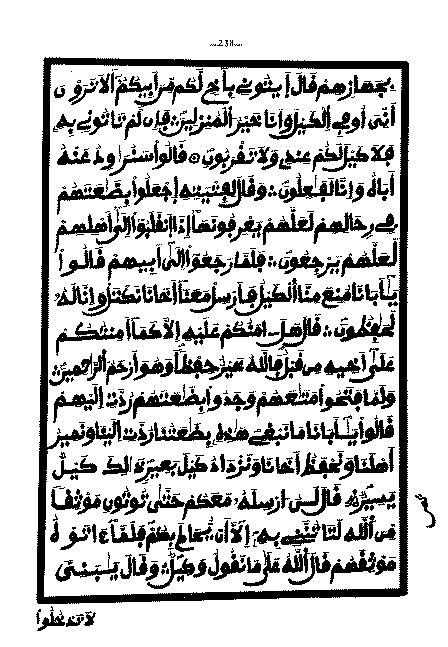 ...238...
بجهازهم قال ايتوني بأخ لكم من أبيكم ألا ترون
أنّي أوفي الكيل وأنا خير المنزلين فإن لم تاتوني به
فلا كيل لكم عندي ولا تقربون قالوا سنراود عنه
أباه وإنا لفعلون وقال لفتيته اجعلوا بضعتهم
في رحالهم لعلهم يعرفونها إذا انقلبوا إلى أهلهم
لعلهم يرجعون فلما رجعوا إلى أبيهم قالوا
يأبانا منع منا الكيل فأرسل معنا أخانا نكتل وإنا له
لحفظون قال هل امنكم عليه إلا كما أمنتكم
على أخيه من قبل فالله خير حفظا وهو أرحم الرحمين
ولما فتحوا متعهم وجدوا بضعتهم ردت إليهم
قالوا يأبانا ما نبغي هذه بضعتنا ردت إلينا ونمير
أهلنا ونحفظ أخانا ونزداد كيل بعير ذلك كيل
يسير قال لن ارسله معكم حتى توتون موثقا
من الله لتاتنني به إلا أن يحاط بكم فلما ءاتوه
موثقهم قال الله على ما نقول وكيل وقال يبني
لا تدخلوا